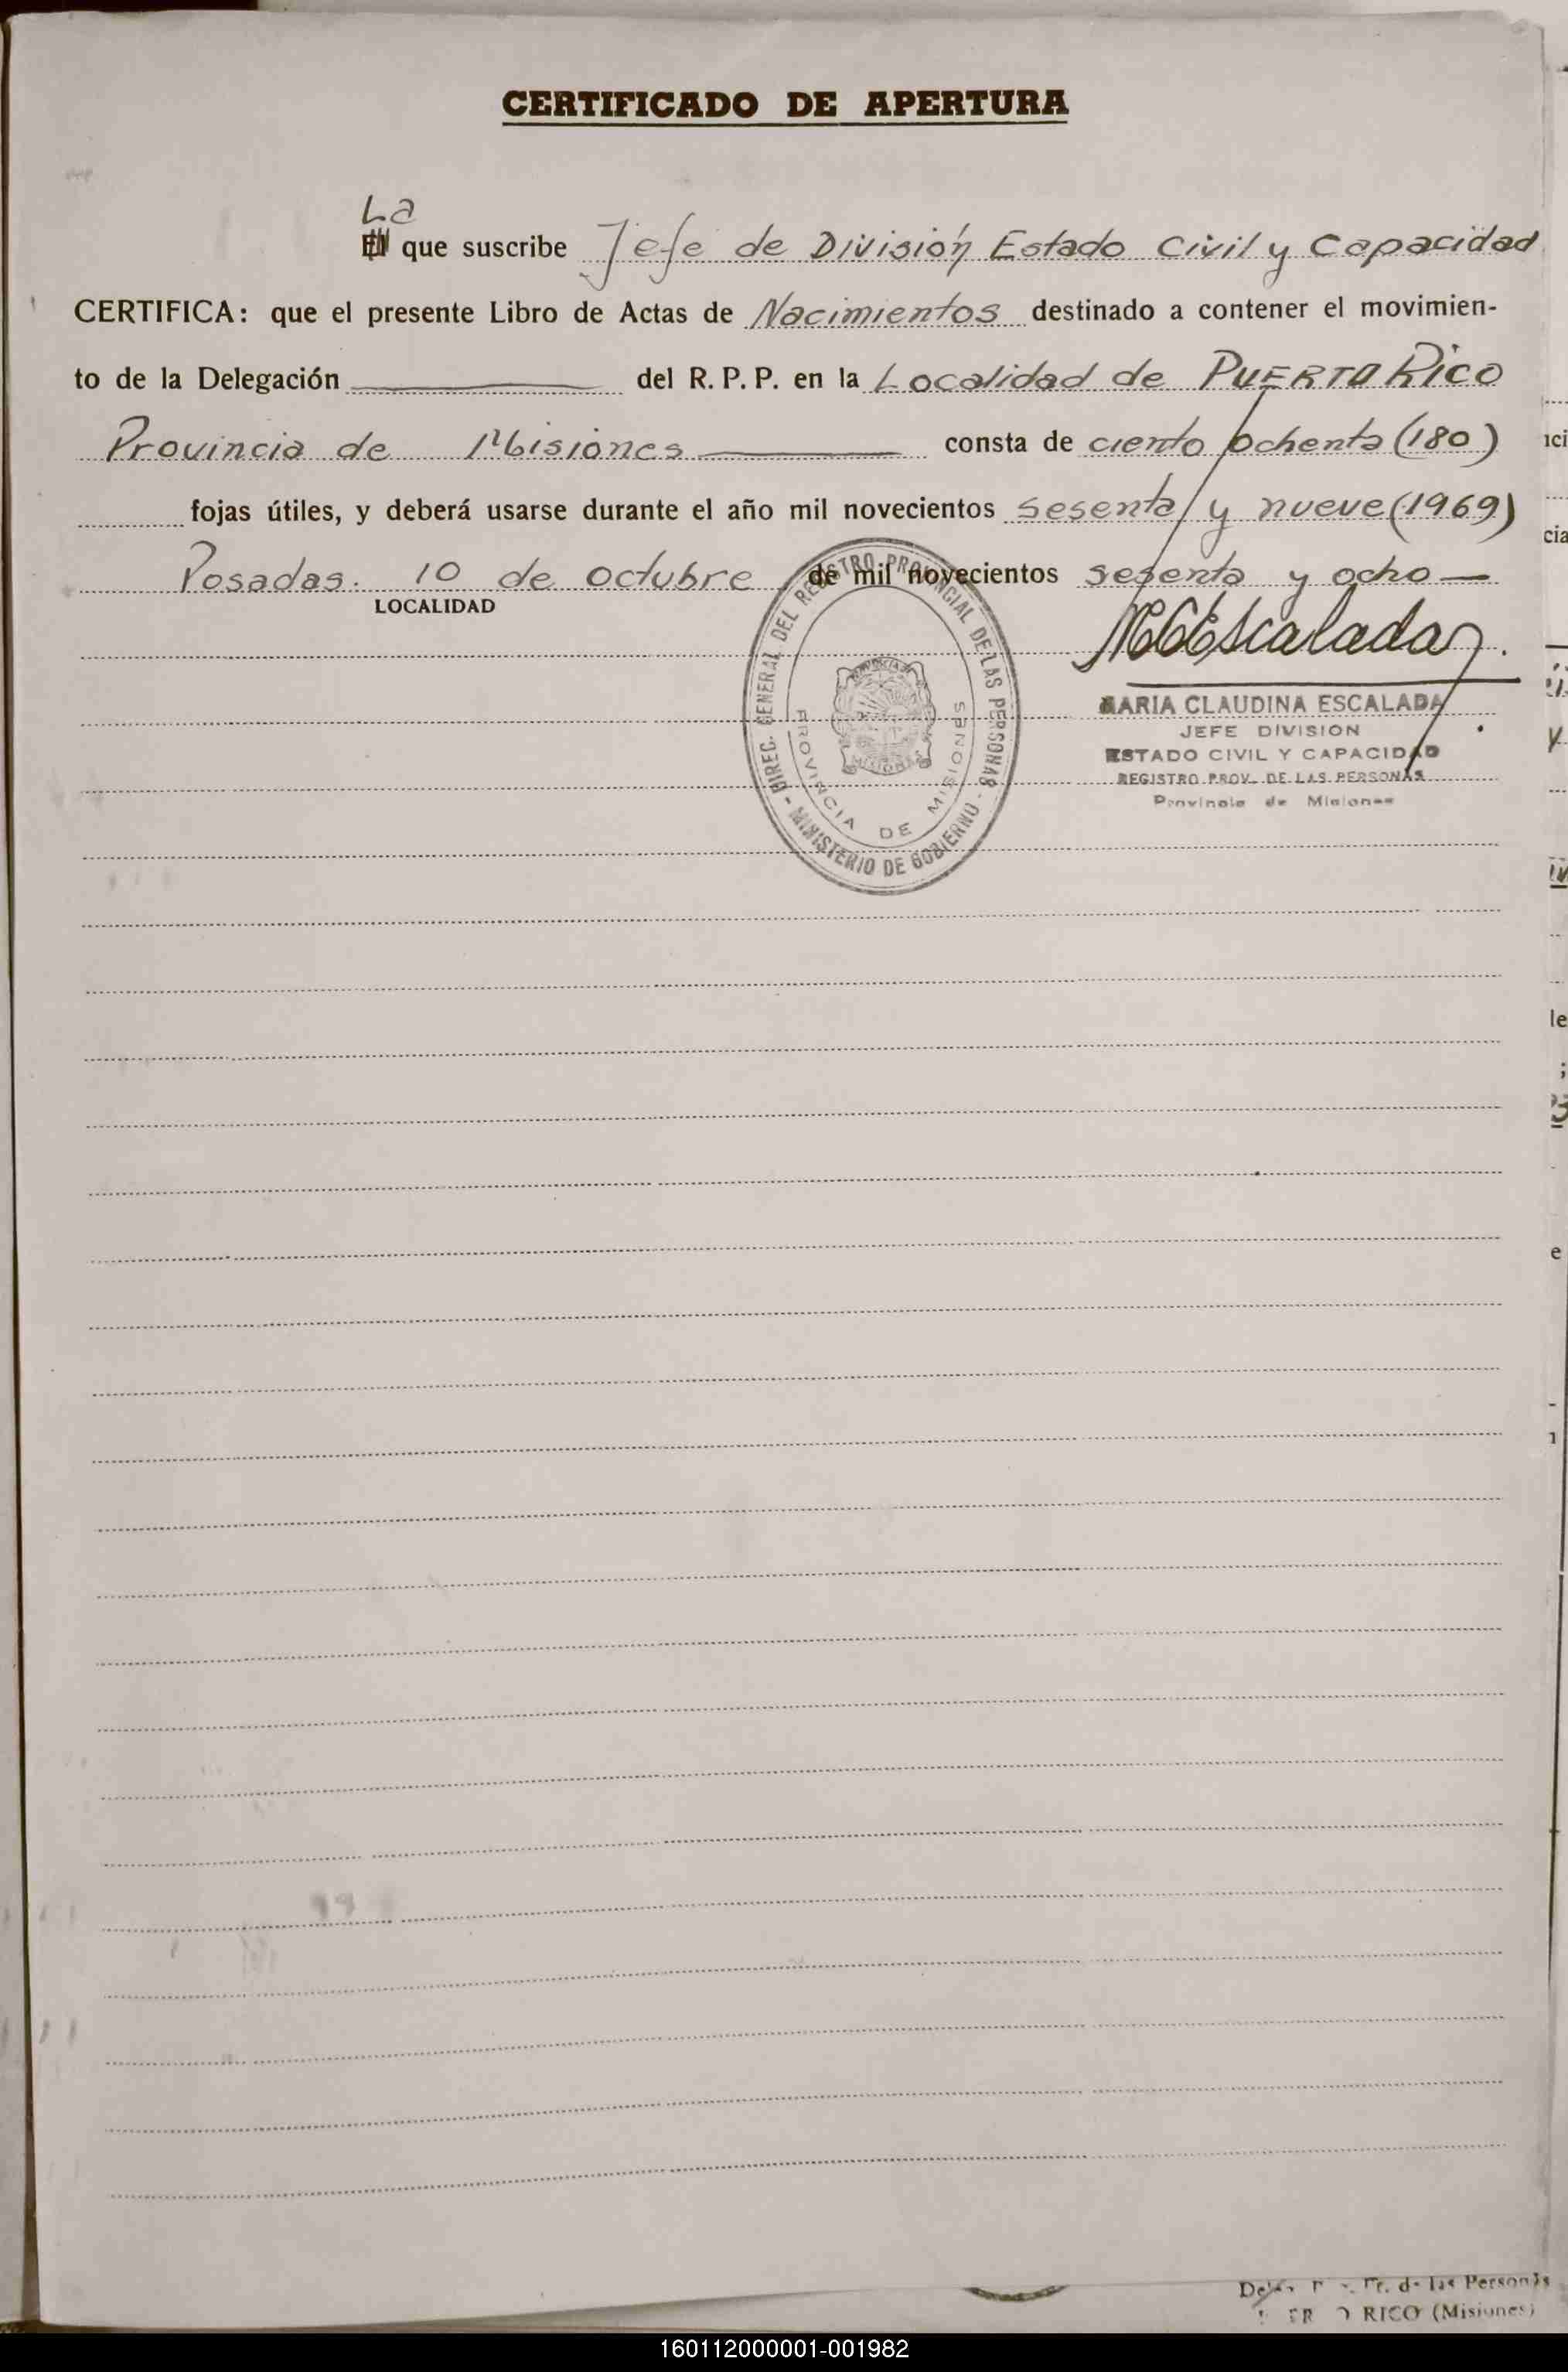 CERTIFICADO DE APERTURA
La
El que suscribe Jefe de División Estado Civil y Capacidad
CERTIFICA: que el presente Libro de Actas de Nacimientos destinado a contener el movimien-
to de la Delegación del R. P. P. en la Localidad de PUERTO RICO
Provincia de Misiones consta de ciento ochenta (180)
fojas útiles, y deberá usarse durante el año mil novecientos sesenta y nueve (1969)
Posadas. 10 de octubre de mil novecientos sesenta y ocho
LOCALIDAD
DIREC. GENERAL DEL REGISTRO PROVINCIAL DE LAS PERSONAS - MINISTERIO DE GOBIERNO -
PROVINCIA DE MISIONES
MCEscalada
MARIA CLAUDINA ESCALADA
JEFE DIVISION
ESTADO CIVIL Y CAPACIDAD
REGISTRO PROV. DE LAS PERSONAS
Provincia de Misiones
de las Personas
RICO (Misiones)
160112000001-001982